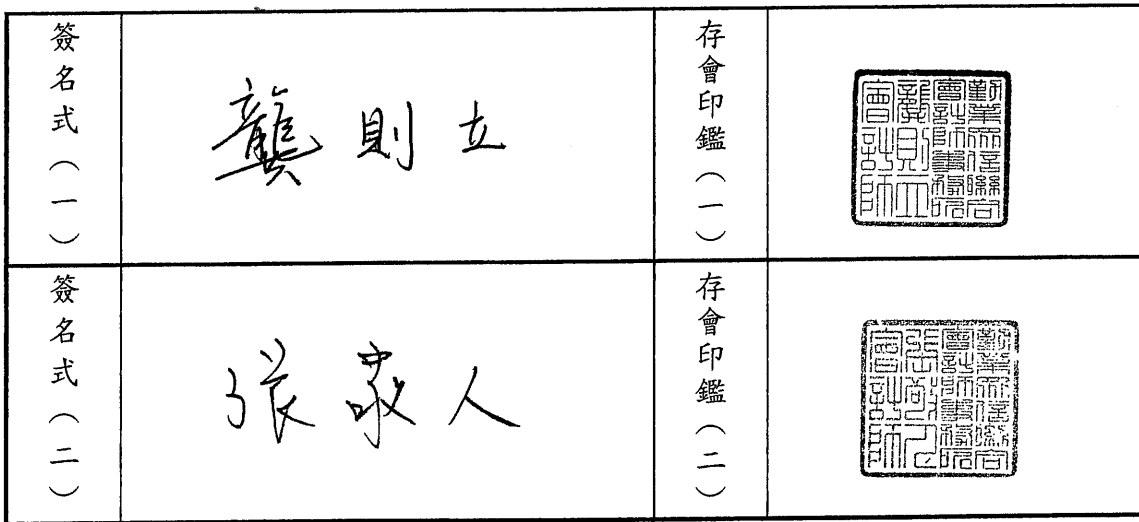 簽名式（一）
龔則立
存會印鑑（一）
勤業眾信聯合
會計師事務所
龔則立
會計師
簽名式（二）
張敬人
存會印鑑（二）
勤業眾信聯合
會計師事務所
張敬人
會計師